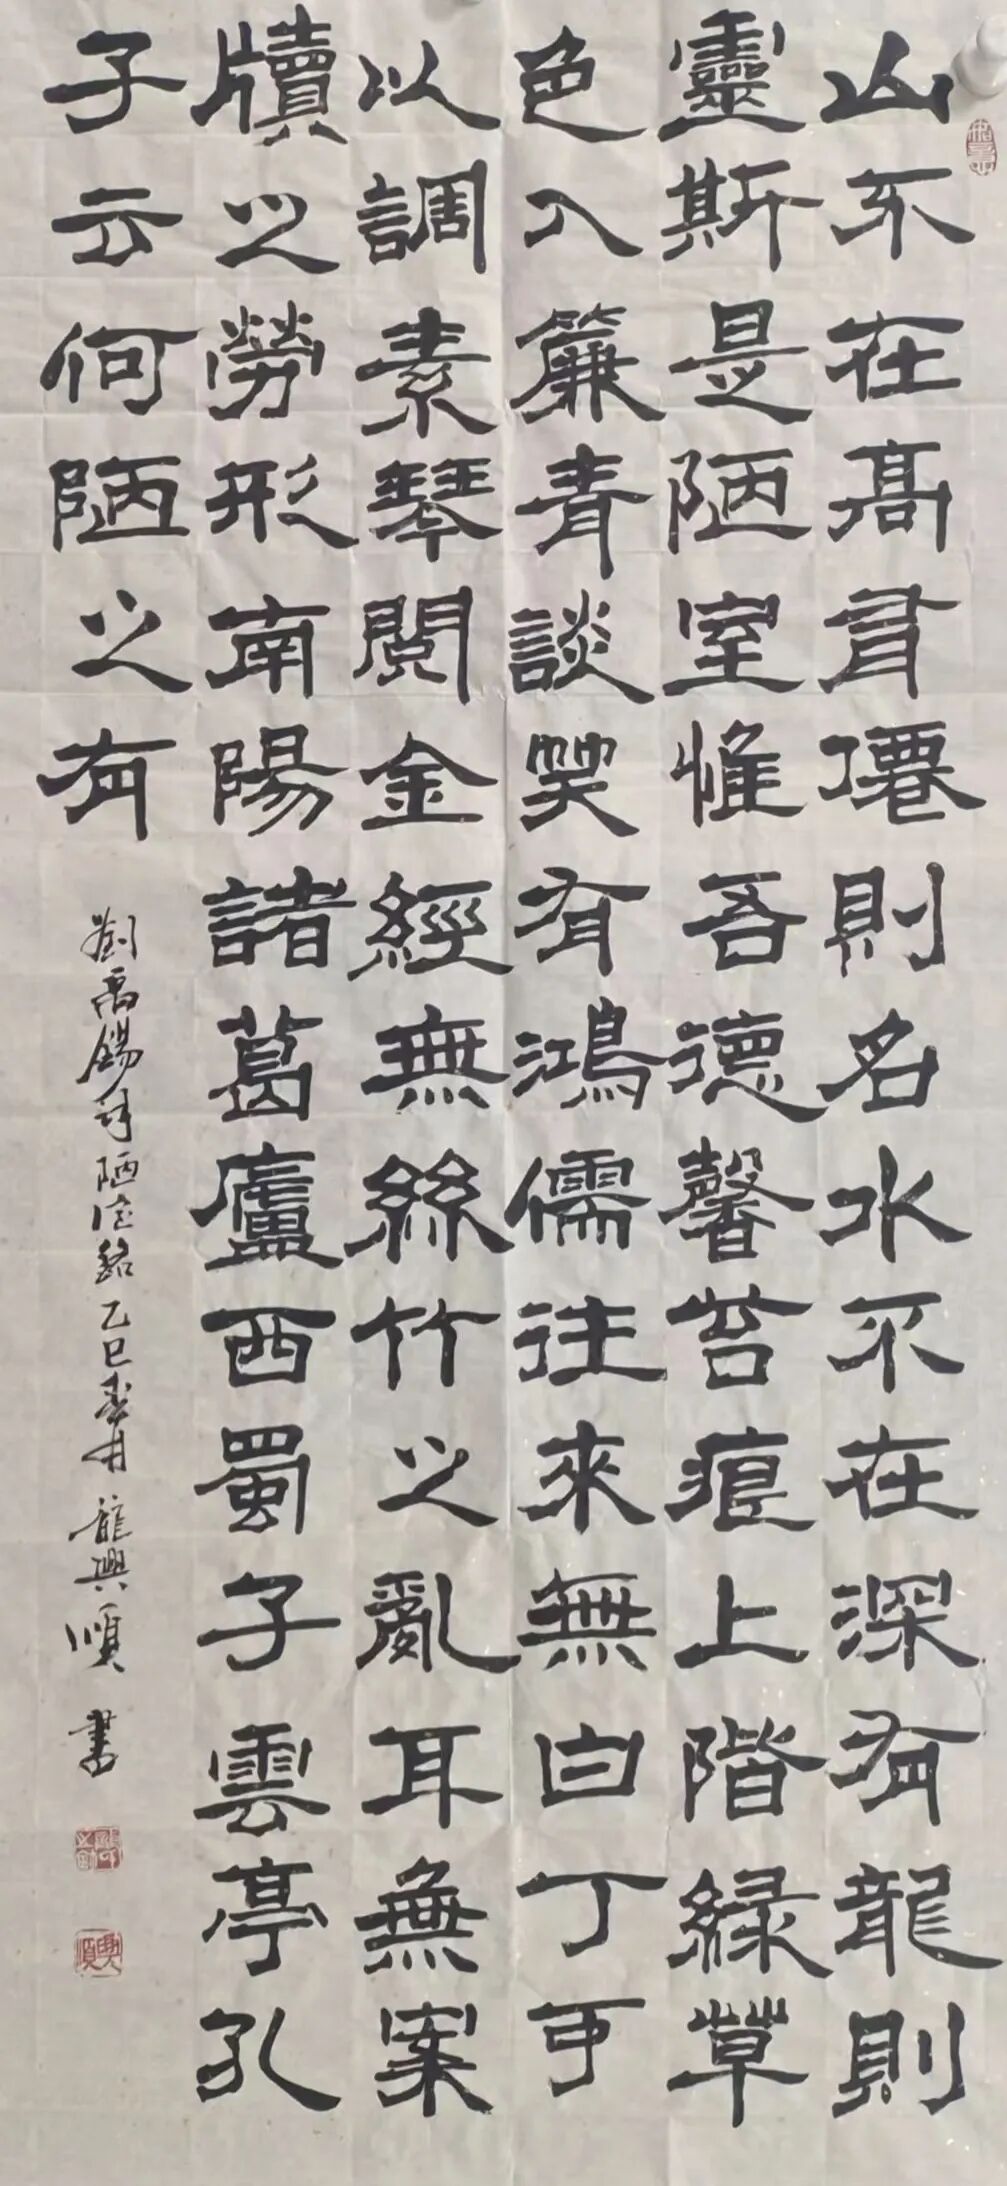 山不在高有僊則名水不在深有龍則
靈斯是陋室惟吾德馨苔痕上階緑草
色入簾青談笑有鴻儒往來無白丁可
以調素琴閱金經無絲竹之亂耳無案
牘之勞形南陽諸葛廬西蜀子雲亭孔
子云何陋之有
劉禹錫詩陋室銘乙巳春月龍興順書
興順